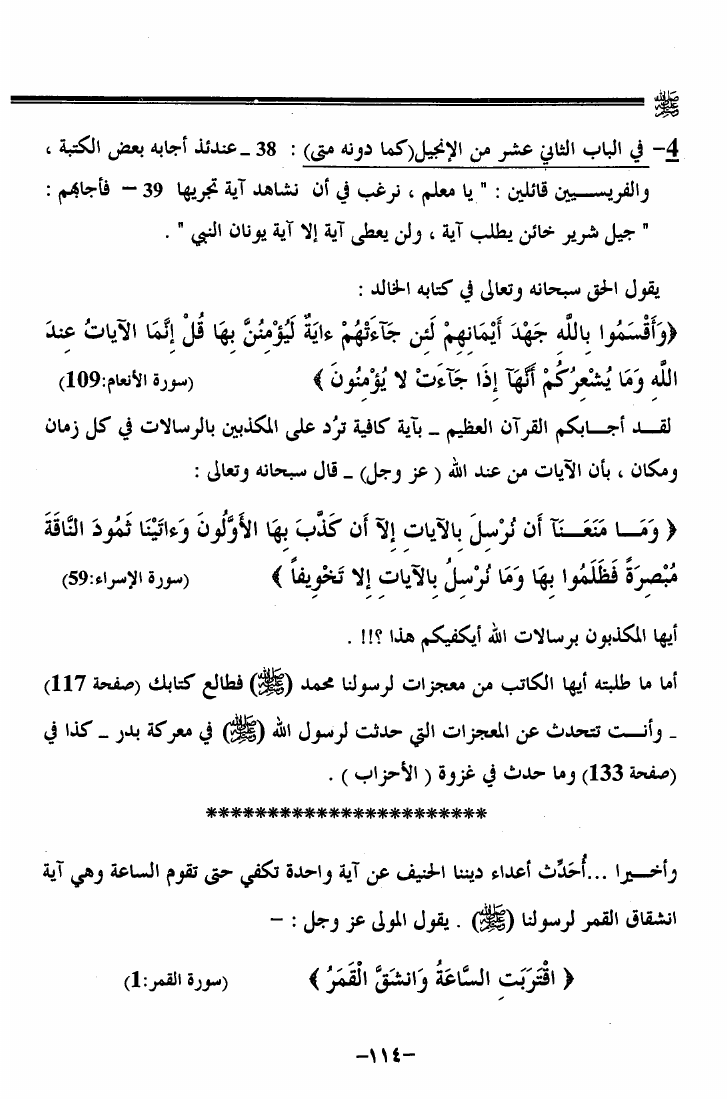 ﷺ
4– في الباب الثاني عشر من الإنجيل(كما دونه متى) : 38 ـ عندئذ أجابه بعض الكتبة ،
والفريسـيين قائلين : " يا معلم ، نرغب في أن نشاهد آية تجريها 39 – فأجابهم :
" جيل شرير خائن يطلب آية ، ولن يعطى آية إلا آية يونان النبي " .
يقول الحق سبحانه وتعالى في كتابه الخالد :
﴿وَأَقْسَمُوا بِاللَّهِ جَهْدَ أَيْمَانِهِمْ لَئِن جَآءَتْهُمْ ءايَةٌ لَيُؤْمِنُنَّ بِهَا قُلْ إِنَّمَا الآيَاتُ عِندَ
اللَّهِ وَمَا يُشْعِرُكُمْ أَنَّهَآ إِذَا جَآءَتْ لا يُؤْمِنُونَ ﴾ (سورة الأنعام:109)
لقـد أجـابكم القرآن العظيم ـ بآية كافية ترُد على المكذبين بالرسالات في كل زمان
ومكان ، بأن الآيات من عند الله ( عز وجل) ـ قال سبحانه وتعالى :
﴿ وَمَـا مَنَعَـنَآ أَن نُرْسِلَ بِالآيَاتِ إِلآ أَن كَذَّبَ بِهَا الأَوَّلُونَ وَءاتَيْنَا ثَمُودَ النَّاقَةَ
مُبْصِرَةً فَظَلَمُوا بِهَا وَمَا نُرْسِلُ بِالآيَاتِ إِلا تَخْوِيفاً ﴾ (سورة الإسراء:59)
أيها المكذبون برسالات الله أيكفيكم هذا ؟!! .
أما ما طلبته أيها الكاتب من معجزات لرسولنا محمد (ﷺ) فطالع كتابك (صفحة 117)
ـ وأنـت تتحدث عن المعجزات التي حدثت لرسول الله (ﷺ) في معركة بدر ـ كذا في
(صفحة 133) وما حدث في غزوة ( الأحزاب ) .
***********************
وأخـيرا ...أُحَدِّث أعداء ديننا الحنيف عن آية واحدة تكفي حتى تقوم الساعة وهي آية
انشقاق القمر لرسولنا (ﷺ) . يقول المولى عز وجل : –
﴿ اقْتَرَبَتِ السَّاعَةُ وَانشَقَّ الْقَمَرُ ﴾ (سورة القمر:1)
–١١٤–